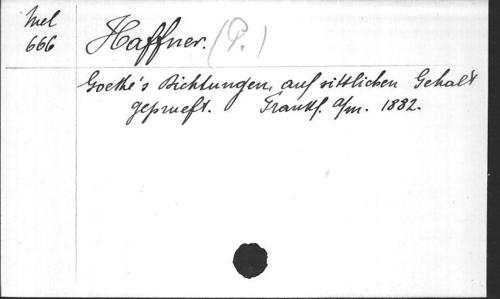 Mel
666
Haffner. (P.)
Goethe's Dichtungen, auf sittlichen Gehalt
geprueft. Frankf. a/m. 1882.